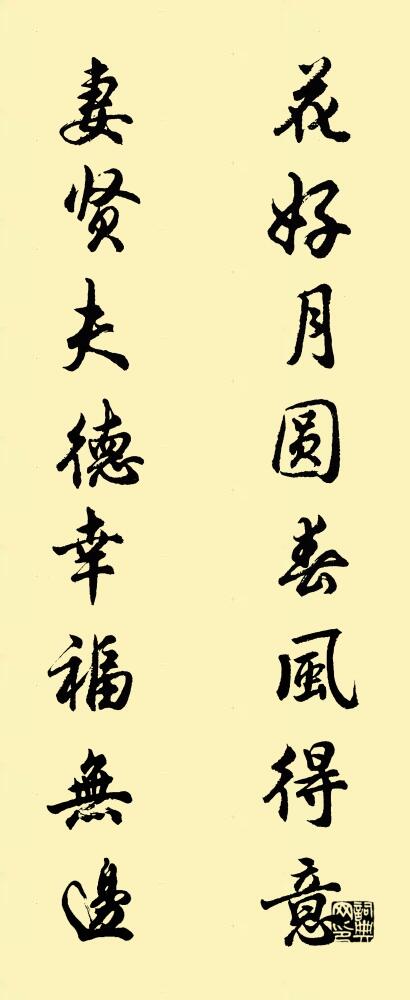 花好月圆春風得意
妻贤夫德幸福無邊
詞典網印